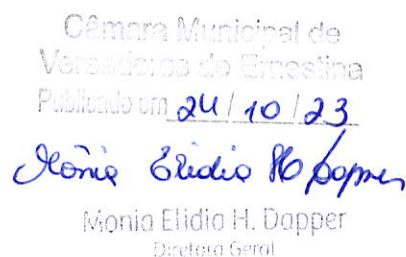 Câmara Municipal de
Vereadores de Ernestina
Publicado em 24/10/23
Mônia Elidio H Dapper
Monia Elidio H. Dapper
Diretora Geral